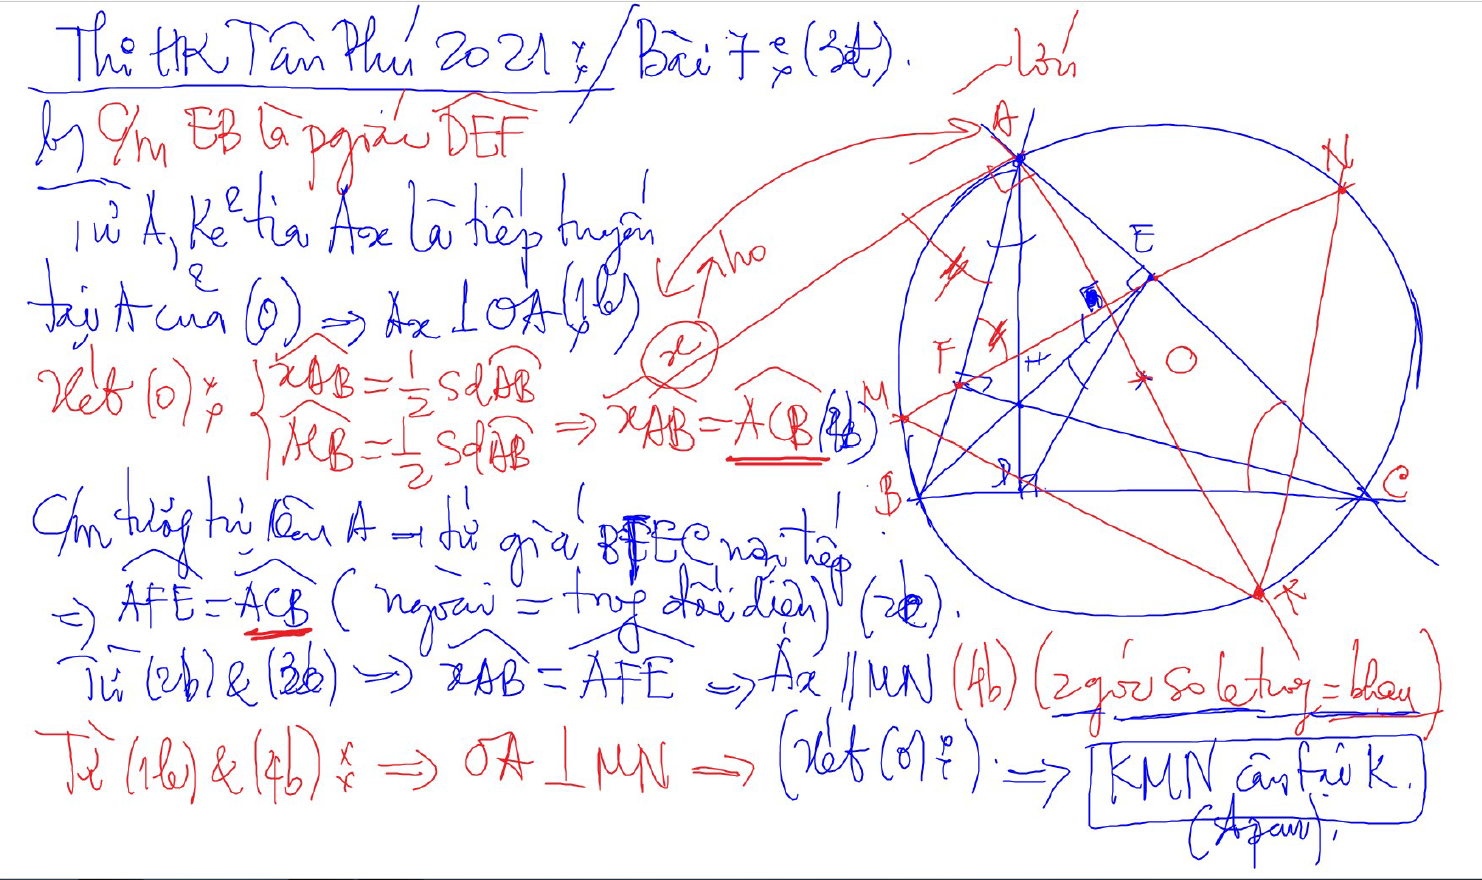 Thi HK Tân Phú 2021 : / Bài 7 : (3đ).
lớn
b) C/m EB là pgiác DEF
Từ A, Kẻ tia Ax là tiếp tuyến
tại A của (O) => Ax ⊥ OA (1b)
nhỏ
x
Xét (O): { xAB = 1/2 Sđ AB
ACB = 1/2 Sđ AB => xAB = ACB (2b)
C/m tương tự câu A → tứ giác BFEC nội tiếp
=> AFE = ACB (ngoài = trong đối diện) (3b).
Từ (2b) & (3b) => xAB = AFE => Ax // MN (4b) (2 góc so le trong = nhau)
Từ (1b) & (4b) : => OA ⊥ MN => (Xét (O):). => KMN cân tại K.
A
N
E
F
H
O
M
B
D
C
K